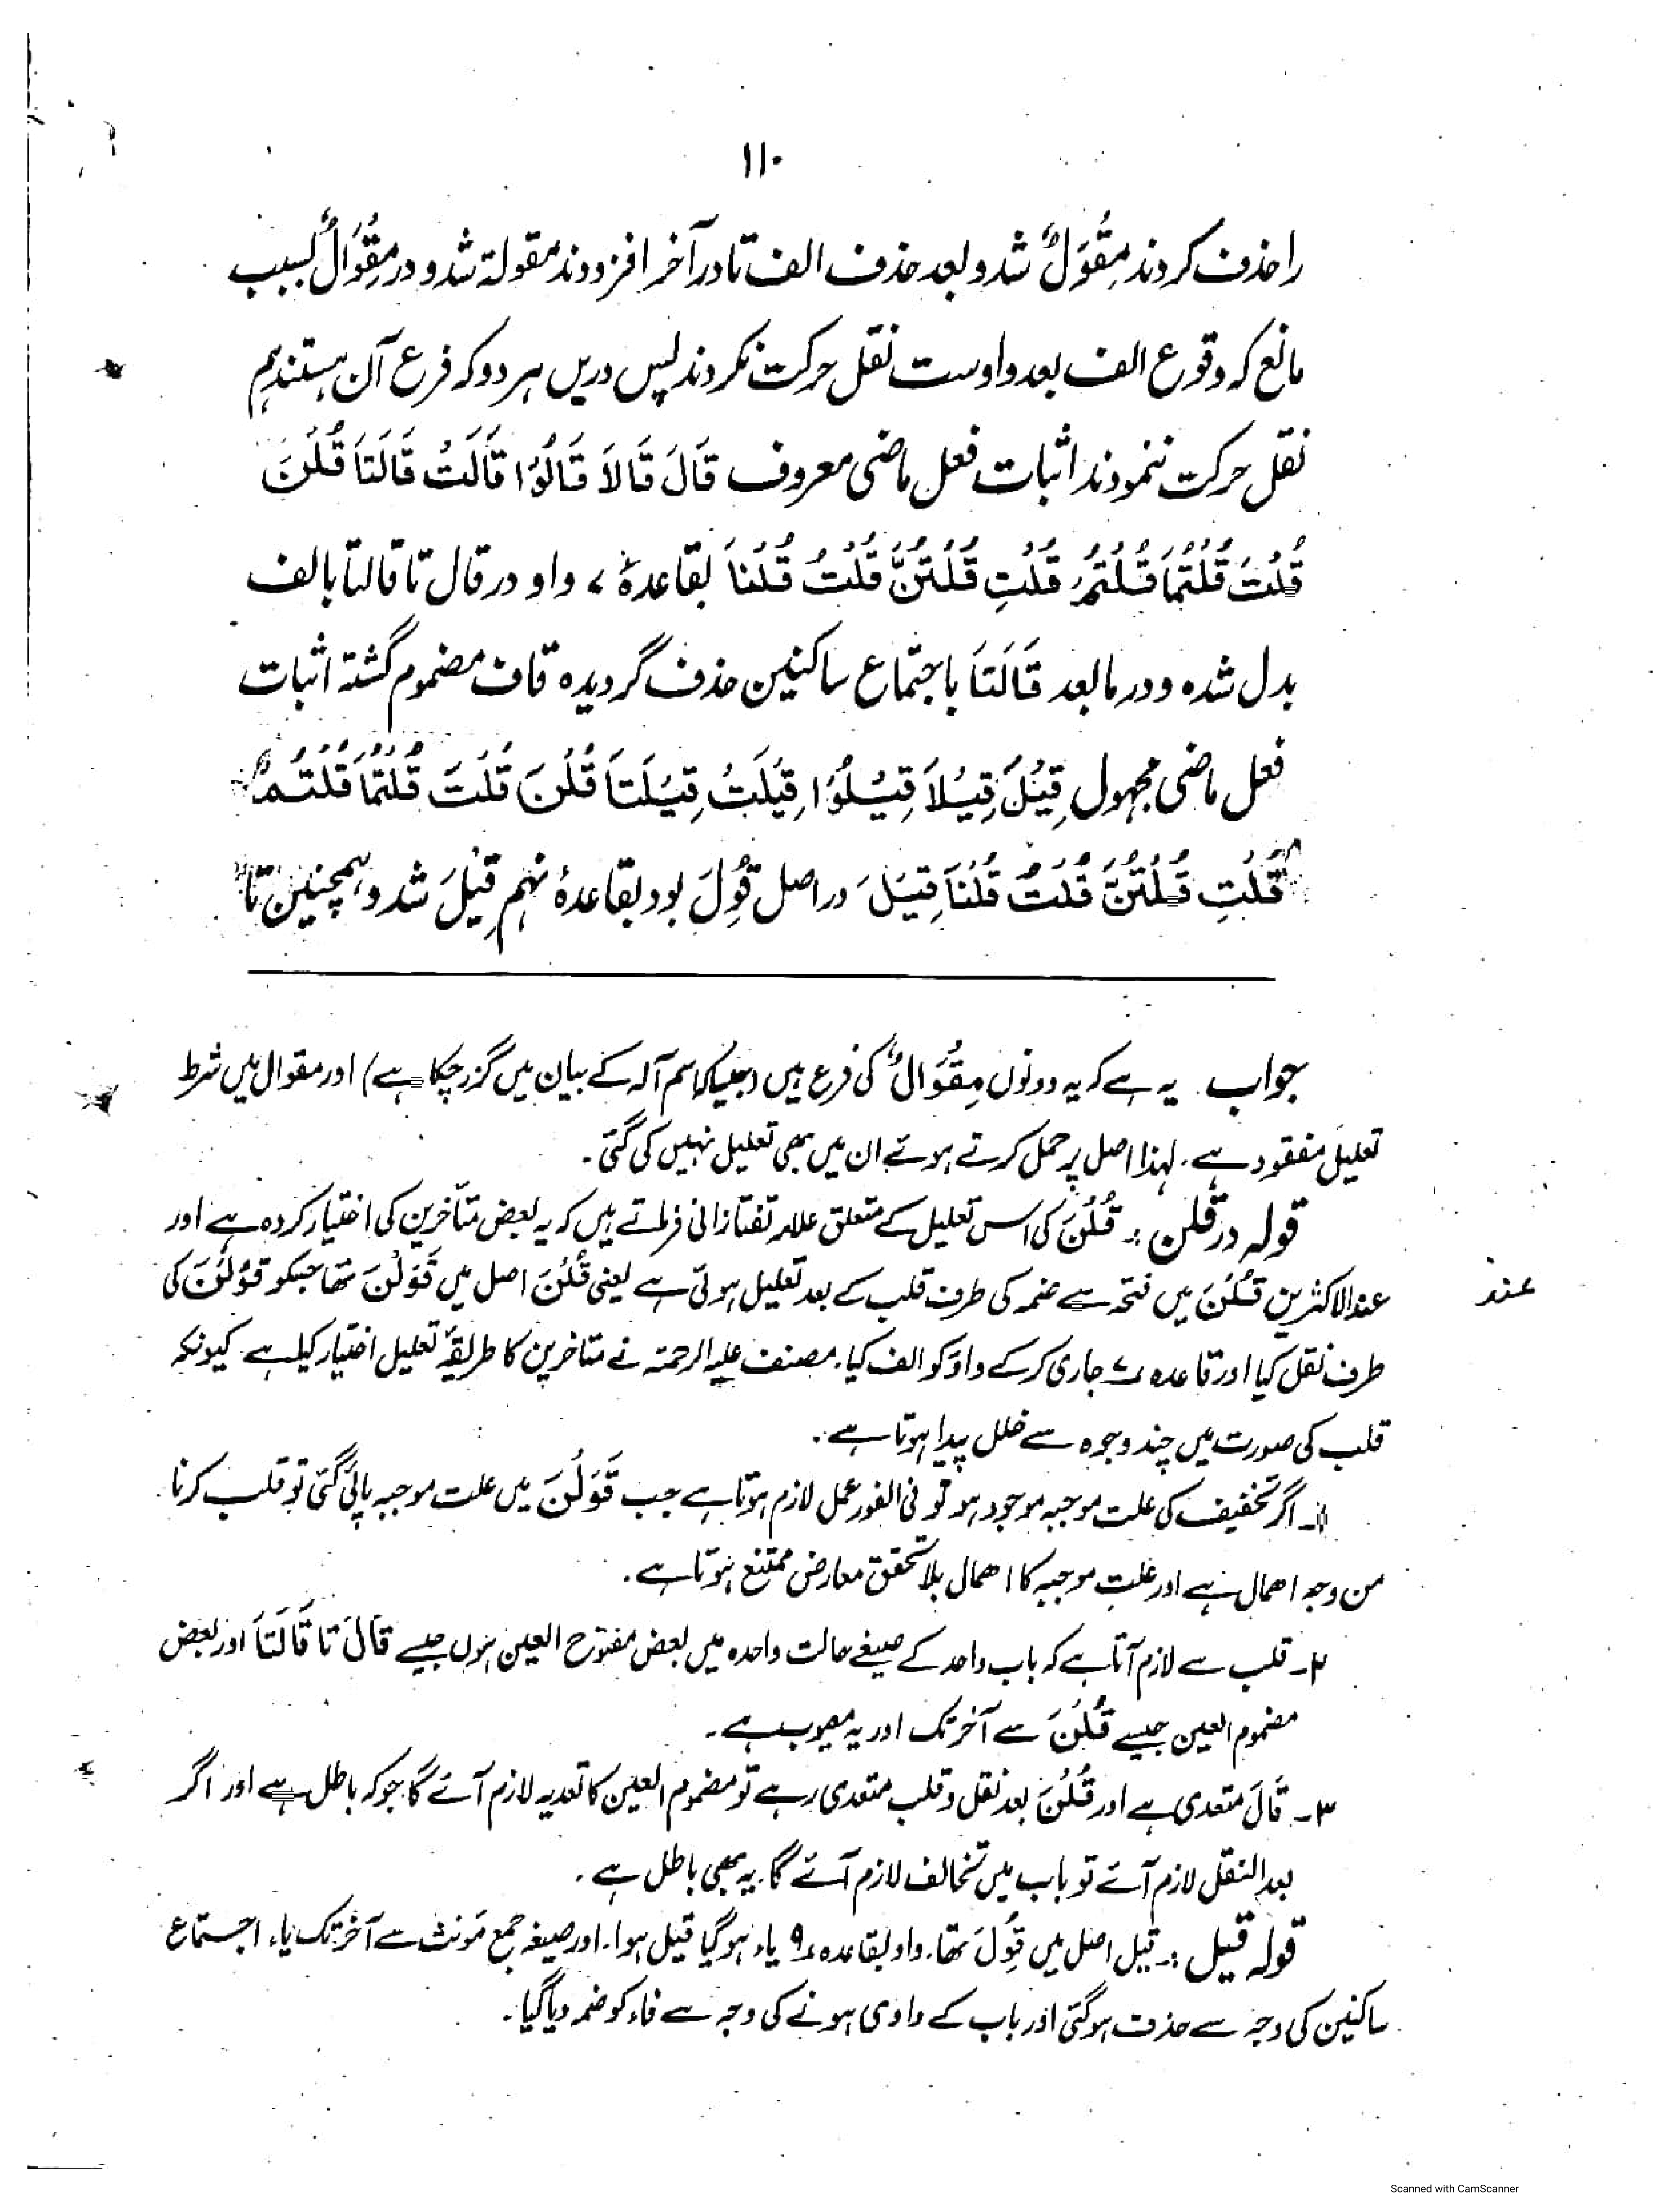 ۱۱۰
را حذف کردند مِقْوَلٌ شد و بعد حذف الف تا در آخر افزودند مقولة شد و در مِقْوَالٌ بسبب
مانع کہ وقوع الف بعد واوست نقل حرکت نکردند پس دریں ہر دو کہ فرع آن ہستند ہم
نقل حرکت ننمودند اثبات فعل ماضی معروف قَالَ قَالَا قَالُوْا قَالَتْ قَالَتَا قُلْنَ
قُلْتَ قُلْتُمَا قُلْتُمْ قُلْتِ قُلْتُنَّ قُلْتُ قُلْنَا بقاعدۂ ۷ واو در قال تا قالتا بالف
بدل شدہ و در ما بعد قَالَتَا باجتماع ساکنین حذف گردیدہ قاف مضموم گشتہ اثبات
فعل ماضی مجہول قِيْلَ قِيْلَا قِيْلُوْا قِيْلَتْ قِيْلَتَا قُلْنَ قُلْتَ قُلْتُمَا قُلْتُمْ
قُلْتِ قُلْتُنَّ قُلْتُ قُلْنَا قِيْلَ دراصل قُوِلَ بود بقاعدۂ نہم قِيْلَ شد و ہمچنین تا
جواب یہ ہے کہ یہ دونوں مِقْوَالٌ کی فرع ہیں (جیساکہ اسم آلہ کے بیان میں گزر چکا ہے) اور مقوال میں شرط
تعلیل مفقود ہے۔ لہذا اصل پر حمل کرتے ہوئے ان میں بھی تعلیل نہیں کی گئی۔
قولہ در قلن :۔ قُلْنَ کی اس تعلیل کے متعلق علامہ تفتازانی فرماتے ہیں کہ یہ بعض متأخرین کی اختیار کردہ ہے اور
عند الاکثرین قُلْنَ میں فتحہ سے ضمہ کی طرف قلب کے بعد تعلیل ہوئی ہے یعنی قُلْنَ اصل میں قَوَلْنَ تھا جسکو قَوُلْنَ کی
عند
طرف نقل کیا اور قاعدہ ۷ جاری کرکے واؤ کو الف کیا۔ مصنف علیہ الرحمۃ نے متاخرین کا طریقۂ تعلیل اختیار کیا ہے۔ کیونکہ
قلب کی صورت میں چند وجوہ سے خلل پیدا ہوتا ہے۔
۱۔ اگر تخفیف کی علت موجبہ موجود ہو تو فی الفور عمل لازم ہوتا ہے جب قَوَلْنَ میں علت موجبہ پائی گئی تو قلب کرنا
من وجہ اھمال ہے اور علت موجبہ کا اھمال بلا تحقق معارض ممتنع ہوتا ہے۔
۲۔ قلب سے لازم آتا ہے کہ باب واحد کے صیغے حالت واحدہ میں بعض مفتوح العین ہوں جیسے قَالَ تا قَالَتَا اور بعض
مضموم العین جیسے قُلْنَ سے آخر تک اور یہ معیوب ہے۔
۳۔ قَالَ متعدی ہے اور قُلْنَ بعد نقل و قلب متعدی رہے تو مضموم العین کا تعدیہ لازم آئے گا جو کہ باطل ہے اور اگر
بعد النقل لازم آئے تو باب میں تخالف لازم آئے گا۔ یہ بھی باطل ہے۔
قولہ قیل :۔ قیل اصل میں قُوِلَ تھا۔ واو بقاعدہ ۹ یاء ہوگیا قیل ہوا۔ اور صیغہ جمع مؤنث سے آخر تک یاء اجتماع
ساکنین کی وجہ سے حذف ہوگئی اور باب کے واوی ہونے کی وجہ سے فاء کو ضمہ دیا گیا۔
Scanned with CamScanner